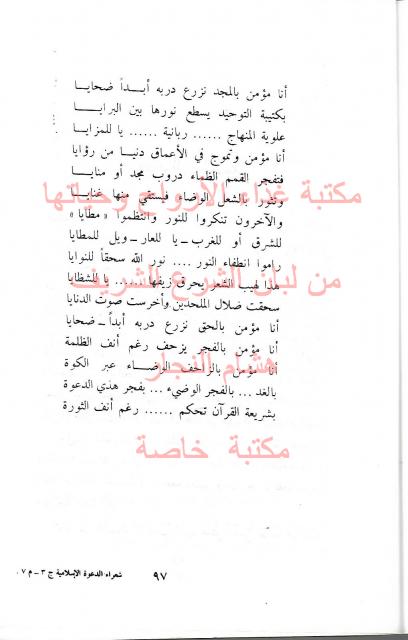 أنا مؤمن بالمجد نزرع دربه أبداً ضحايا
بكتيبة التوحيد يسطع نورها بين البرايا
علوية المنهاج ...... ربانية ...... يا للمزايا
أنا مؤمن وتموج في الأعماق دنيا من رؤايا
فتفجر القمم الظماء دروب مجد أو منايا
مكتبة غذاء الأرواح وحياتها
وتثور بالشعل الوضاء فيستقي منها غنايا
والآخرون تنكروا للنور وانتظموا « مطايا »
للشرق أو للغرب ــ يا للعار ــ ويل للمطايا
راموا انطفاء النور .... نور الله سحقاً للنوايا
من لبان الشرع الشريف
هذا لهيب الشعر يحرق زيفها ...... يا للشظايا
سحقت ضلال الملحدين وأخرست صوت الدنايا
أنا مؤمن بالحق نزرع دربه أبداً ــ ضحايا
أنا مؤمن بالفجر يزحف رغم أنف الظلمة
هشام النجار
أنا مؤمن بالزاحف الوضاء عبر الكوة
بالغد ... بالفجر الوضيء ... بفجر هذي الدعوة
بشريعة القرآن تحكم ...... رغم أنف الثورة
مكتبة خاصة
٩٧
شعراء الدعوة الإسلامية ج ٣ ــ م ٧